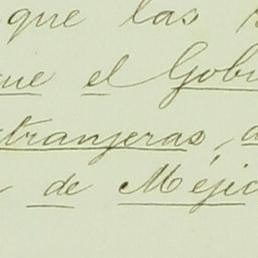 que las
que el Gobi
tranjeras,
de Méjic